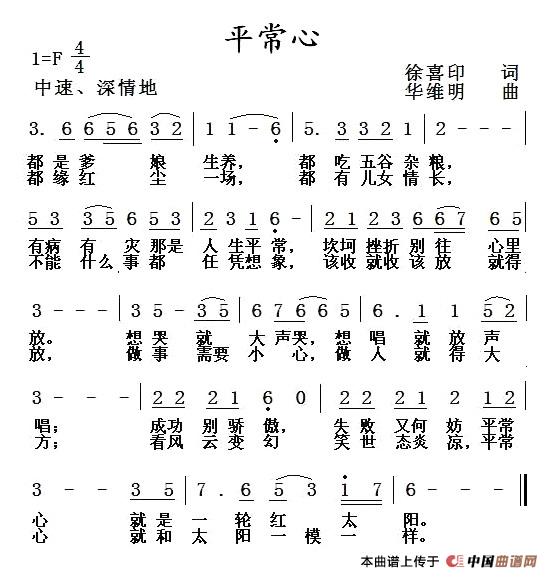 平常心
1=F 4/4
徐喜印 词
中速、深情地
华维明 曲
3. 6 6 5 6 3 2 | 1 1 - 6 | 5. 3 3 2 1 | 2 - - - |
都是爹 娘 生养， 都 吃五谷杂粮，
都缘红 尘 一场， 都 有儿女情长，
5 3 3 5 6 5 3 | 2 3 1 6 - | 2 1 2 3 6 6 7 6 5 |
有病有 灾那是 人生平常， 坎坷挫折别往 心里
不能什么事都 任凭想象， 该收就收该放 就得
3 - - - | 3 5 - 3 5 | 6 7 6 6 5 | 6. 1 1 5 2 |
放。 想哭 就 大声哭，想唱 就放声
放， 做事 需要 小 心，做人 就得大
3 - - - | 2 2 2 1 6 0 | 2 2 2 1 2 1 2 |
唱； 成功别骄傲， 失败又何妨 平常
方； 看风云变幻 笑世态炎凉，平常
3 - - 3 5 | 7. 6 5 3 1 7 | 6 - - - ‖
心 就是一轮红 太 阳。
心 就和太阳一模一 样。
本曲谱上传于 中国曲谱网